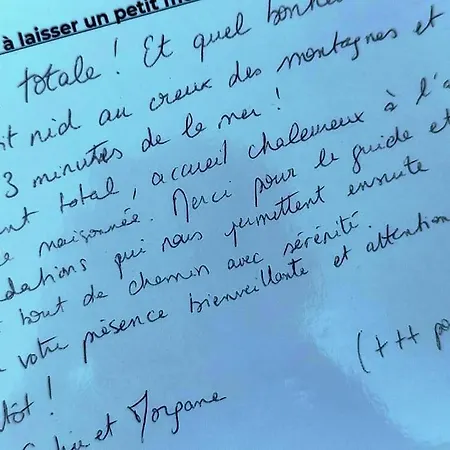 à laisser un petit m
totale ! Et quel bonhe
it nid au creux des montagnes et
3 minutes de la mer !
ent total, accueil chaleureux à l'a
e maisonnée. Merci pour le guide et
dations qui nous permettent ensuite
bout de chemin avec sérénité.
votre présence bienveillante et attention
tôt !
(+++ po
et Morgane